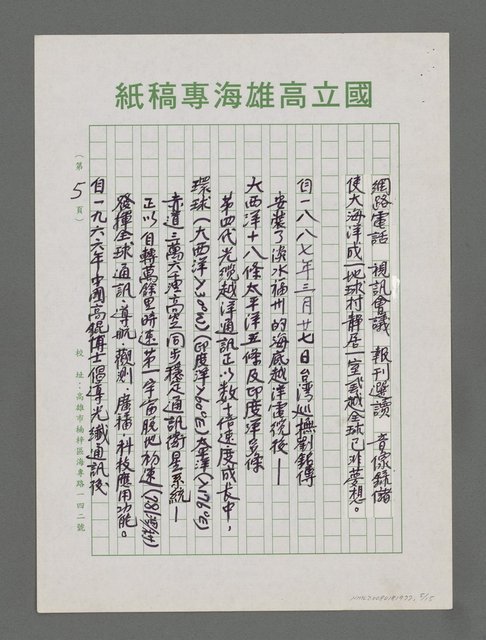 國立高雄海專稿紙
網路電話 視訊會議 報刊選讀 音像錄儲
使大海洋成一地球村靜居一室貳越全球已非夢想。
自一八八七年三月廿七日台灣巡撫劉銘傳
安裝了淡水福州的海底越洋電纜後—
大西洋十八條太平洋五條及印度洋多條
第四代光纜越洋通訊正以數十倍速度成長中，
環球（大西洋 印度洋 60°E 太平洋 176°E）
赤道三萬六千公里高空同步穩定通訊衛星系統—
正以自轉萬餘里時速第一宇宙脫地初速
發揮全球通訊．導航．觀測．廣播．科技應用功能。
自一九六六年中國高錕博士倡導光纖通訊後
（第5頁）
校 址：高雄市楠梓區海專路一四二號